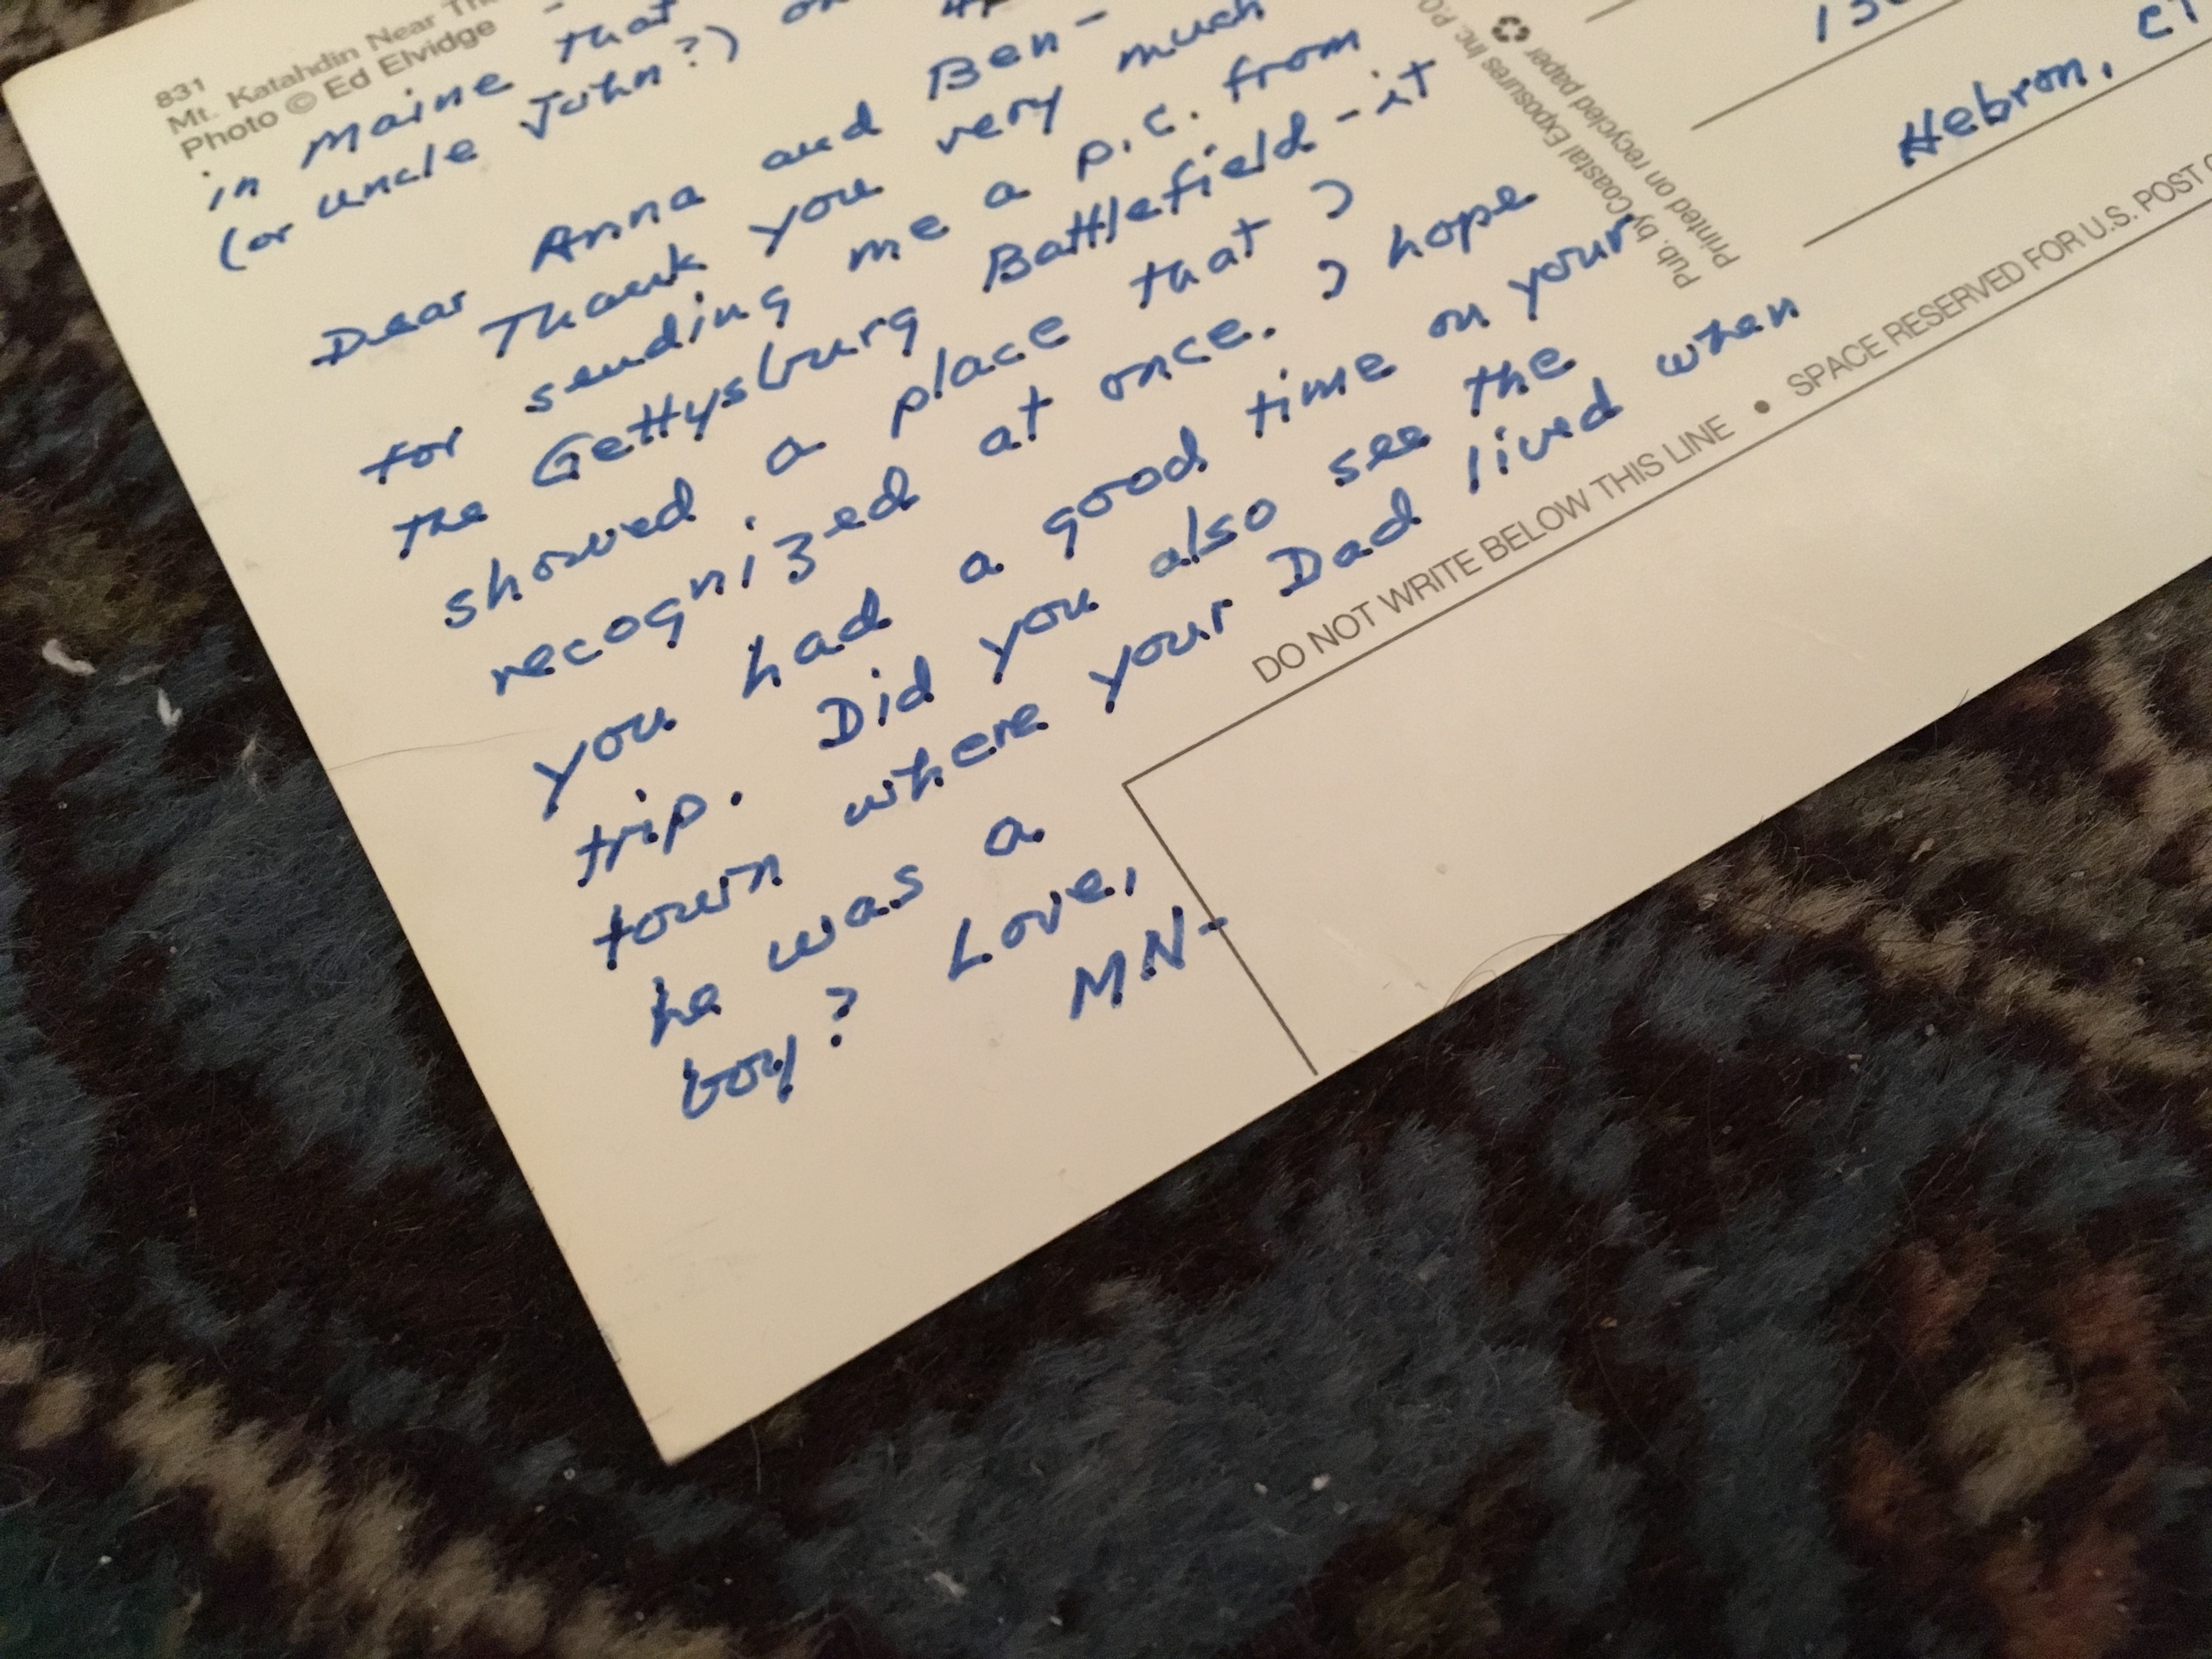 831
Mt. Katahdin Near
Photo © Ed Elvidge
in Maine that
(or uncle John?)
Dear Anna and Ben-
Thank you very much
for sending me a p.c. from
the Gettysburg Battlefield - it
showed a place that I
recognized at once. I hope
you had a good time on your
trip. Did you also see the
town where your Dad lived when
he was a
boy? Love,
MN-
Pub. by Coastal Exposures Inc. P.O.
Printed on recycled paper
Hebron, CT
DO NOT WRITE BELOW THIS LINE • SPACE RESERVED FOR U.S. POST